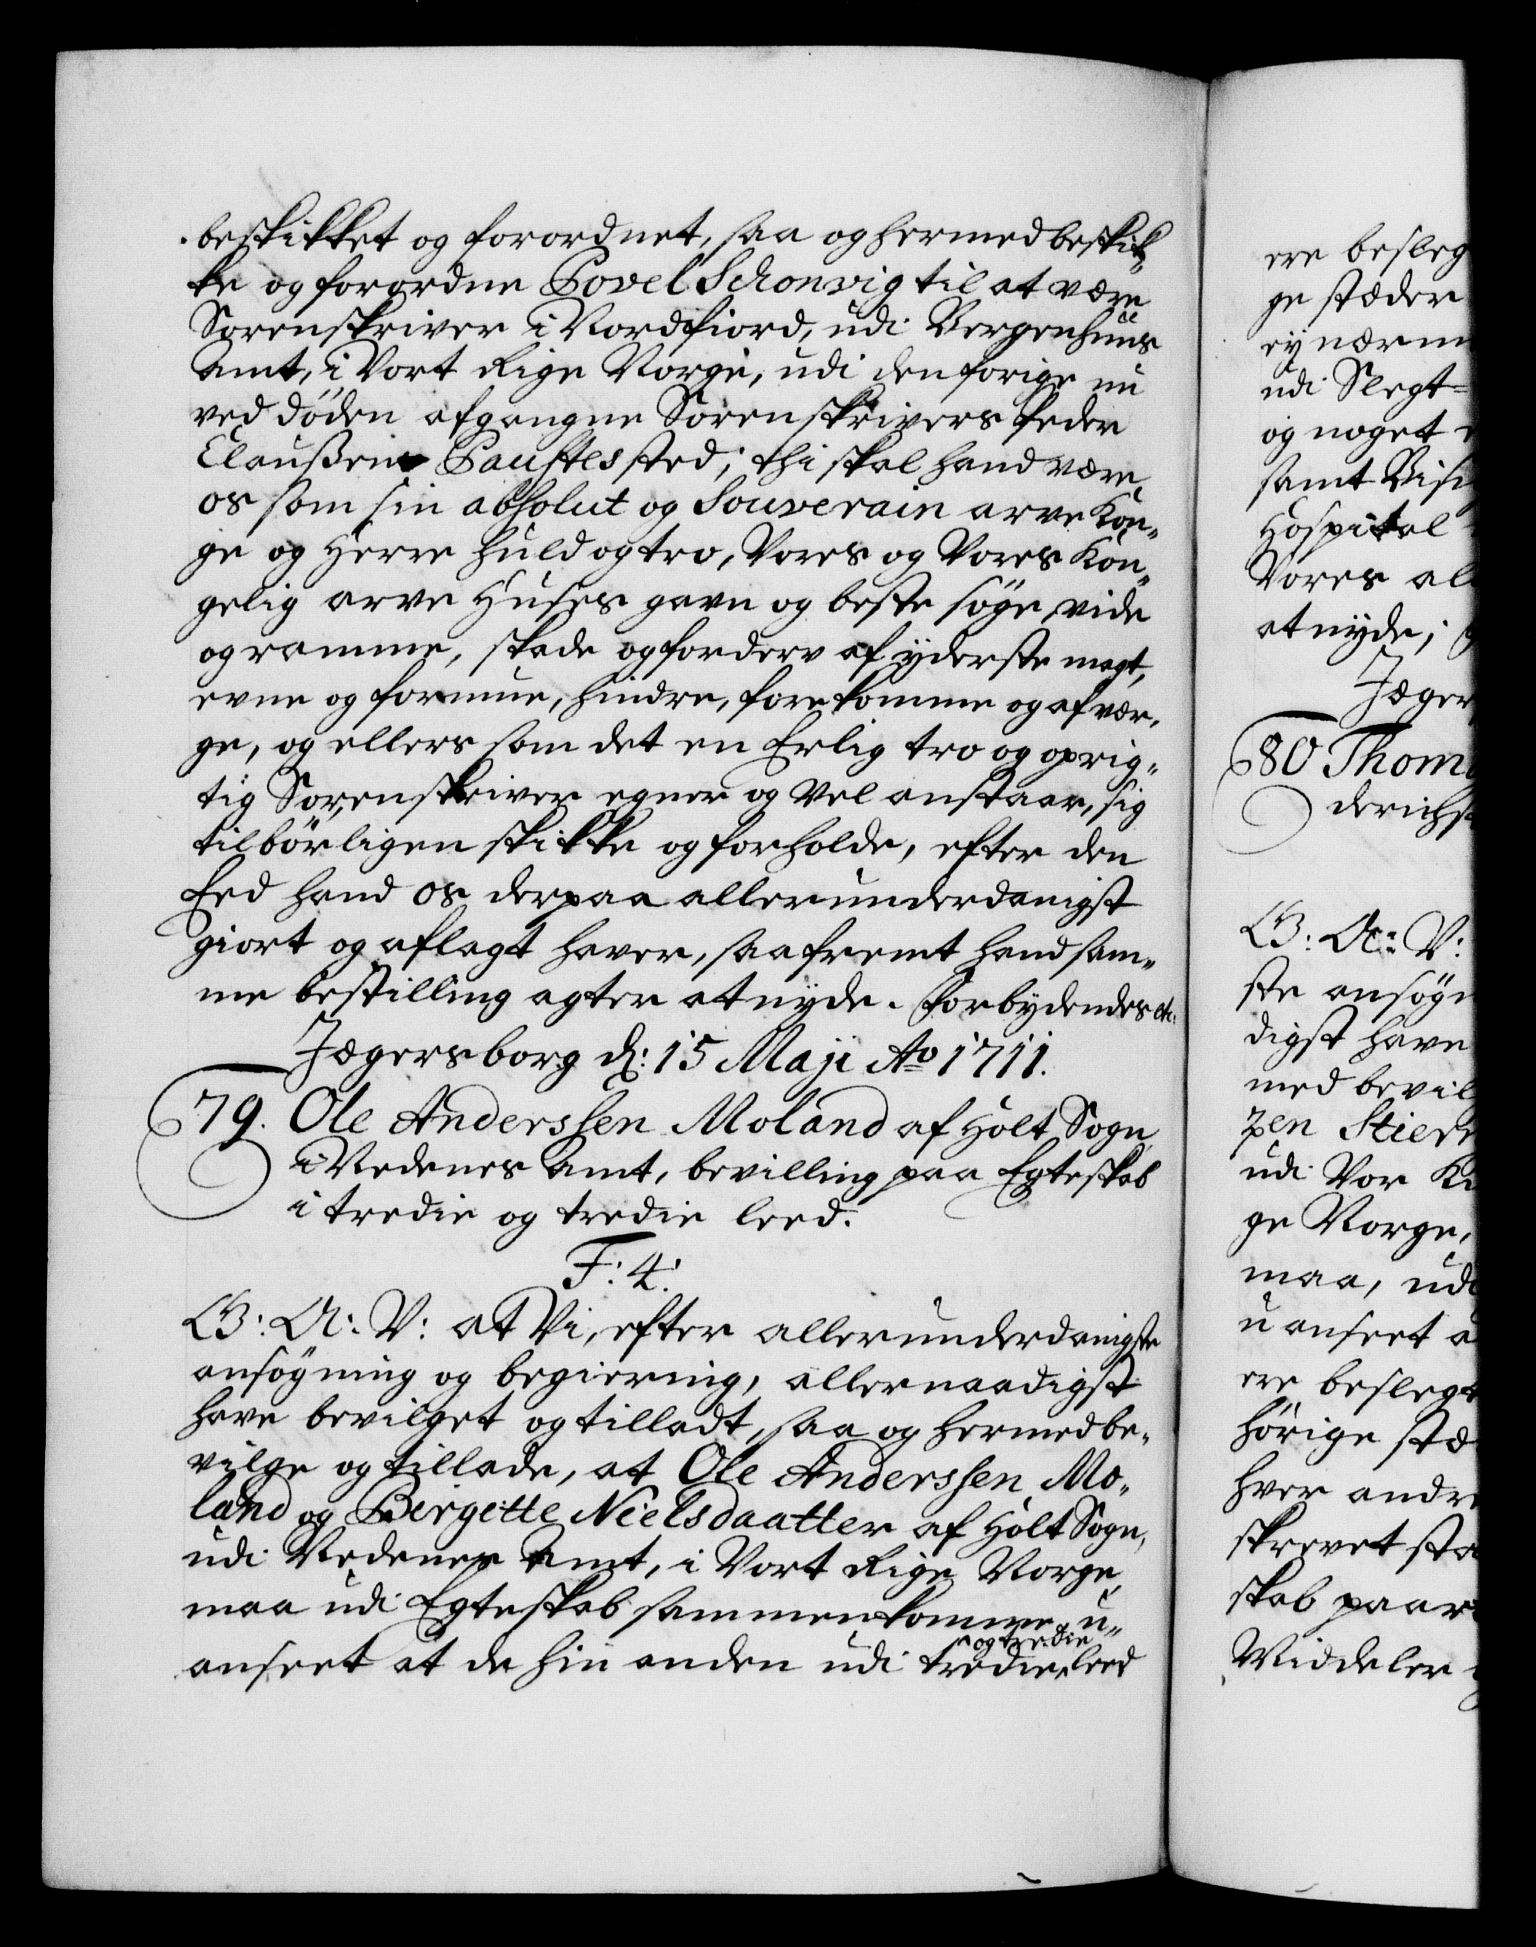 beskikket og forordnet, saa og hermed beskik„
ke og forordne Povel Schonvig til at være
Sorenskriver i Nordfiord, udi Bergenhuus
Amt, i Vort Rige Norge, udi den forige nu
ved døden afgangne Sorenskrivers Peder
Claußen Paustes sted; thi skal hand være
os som sin absolut og Souverain arve Kon„
ge og Herre huld og tro, Vores og Vores Kon„
gelig arve Huses gavn og beste søge, vide
og ramme, skade og forderv af yderste magt,
evne og formue, hindre, forekomme og afvær„
ge, og ellers som det en Erlig tro og oprig„
tig Sorenskriver egner og vel anstaar, sig
tilbørligen skikke og forholde, efter den
Eed hand os derpaa allerunderdanigst
giort og aflagt haver, saafremt hand sam„
me bestilling agter at nyde. Forbydendes etc:
Jægersborg d: 15 Maji Ao 1711.
79. Ole Anderssen Moland af Holt Sogn
i Nedenes Amt, bevilling paa Egteskab
i tredie og tredie leed.
F: 4:
G: A: V: at Vi, efter allerunderdanigste
ansøgning og begiering, allernaadigst
have bevilget og tilladt, saa og hermed be„
vilge og tillade, at Ole Anderssen Mo„
land og Birgette Nielsdaatter af Holt Sogn,
udi Nedenes Amt, i Vort Rige Norge,
maa udi Egteskab sammenkomme, u„
og tredie
anseet at de hin anden udi tredie leed
ere besleg
ge stæder
ey nærm
udi Slegt
og noget
samt Visi
Hospital
Vores al
at nyde;
Jæger
80 Thom
derichs
G: A: V:
ste ansøgn
digst have
med bevil
pen Stier
udi Vor
ge Norge,
maa, udi
uanseet a
ere beslegt
hørige stæ
hver andre
skrevet sta
skab paar
Middeler